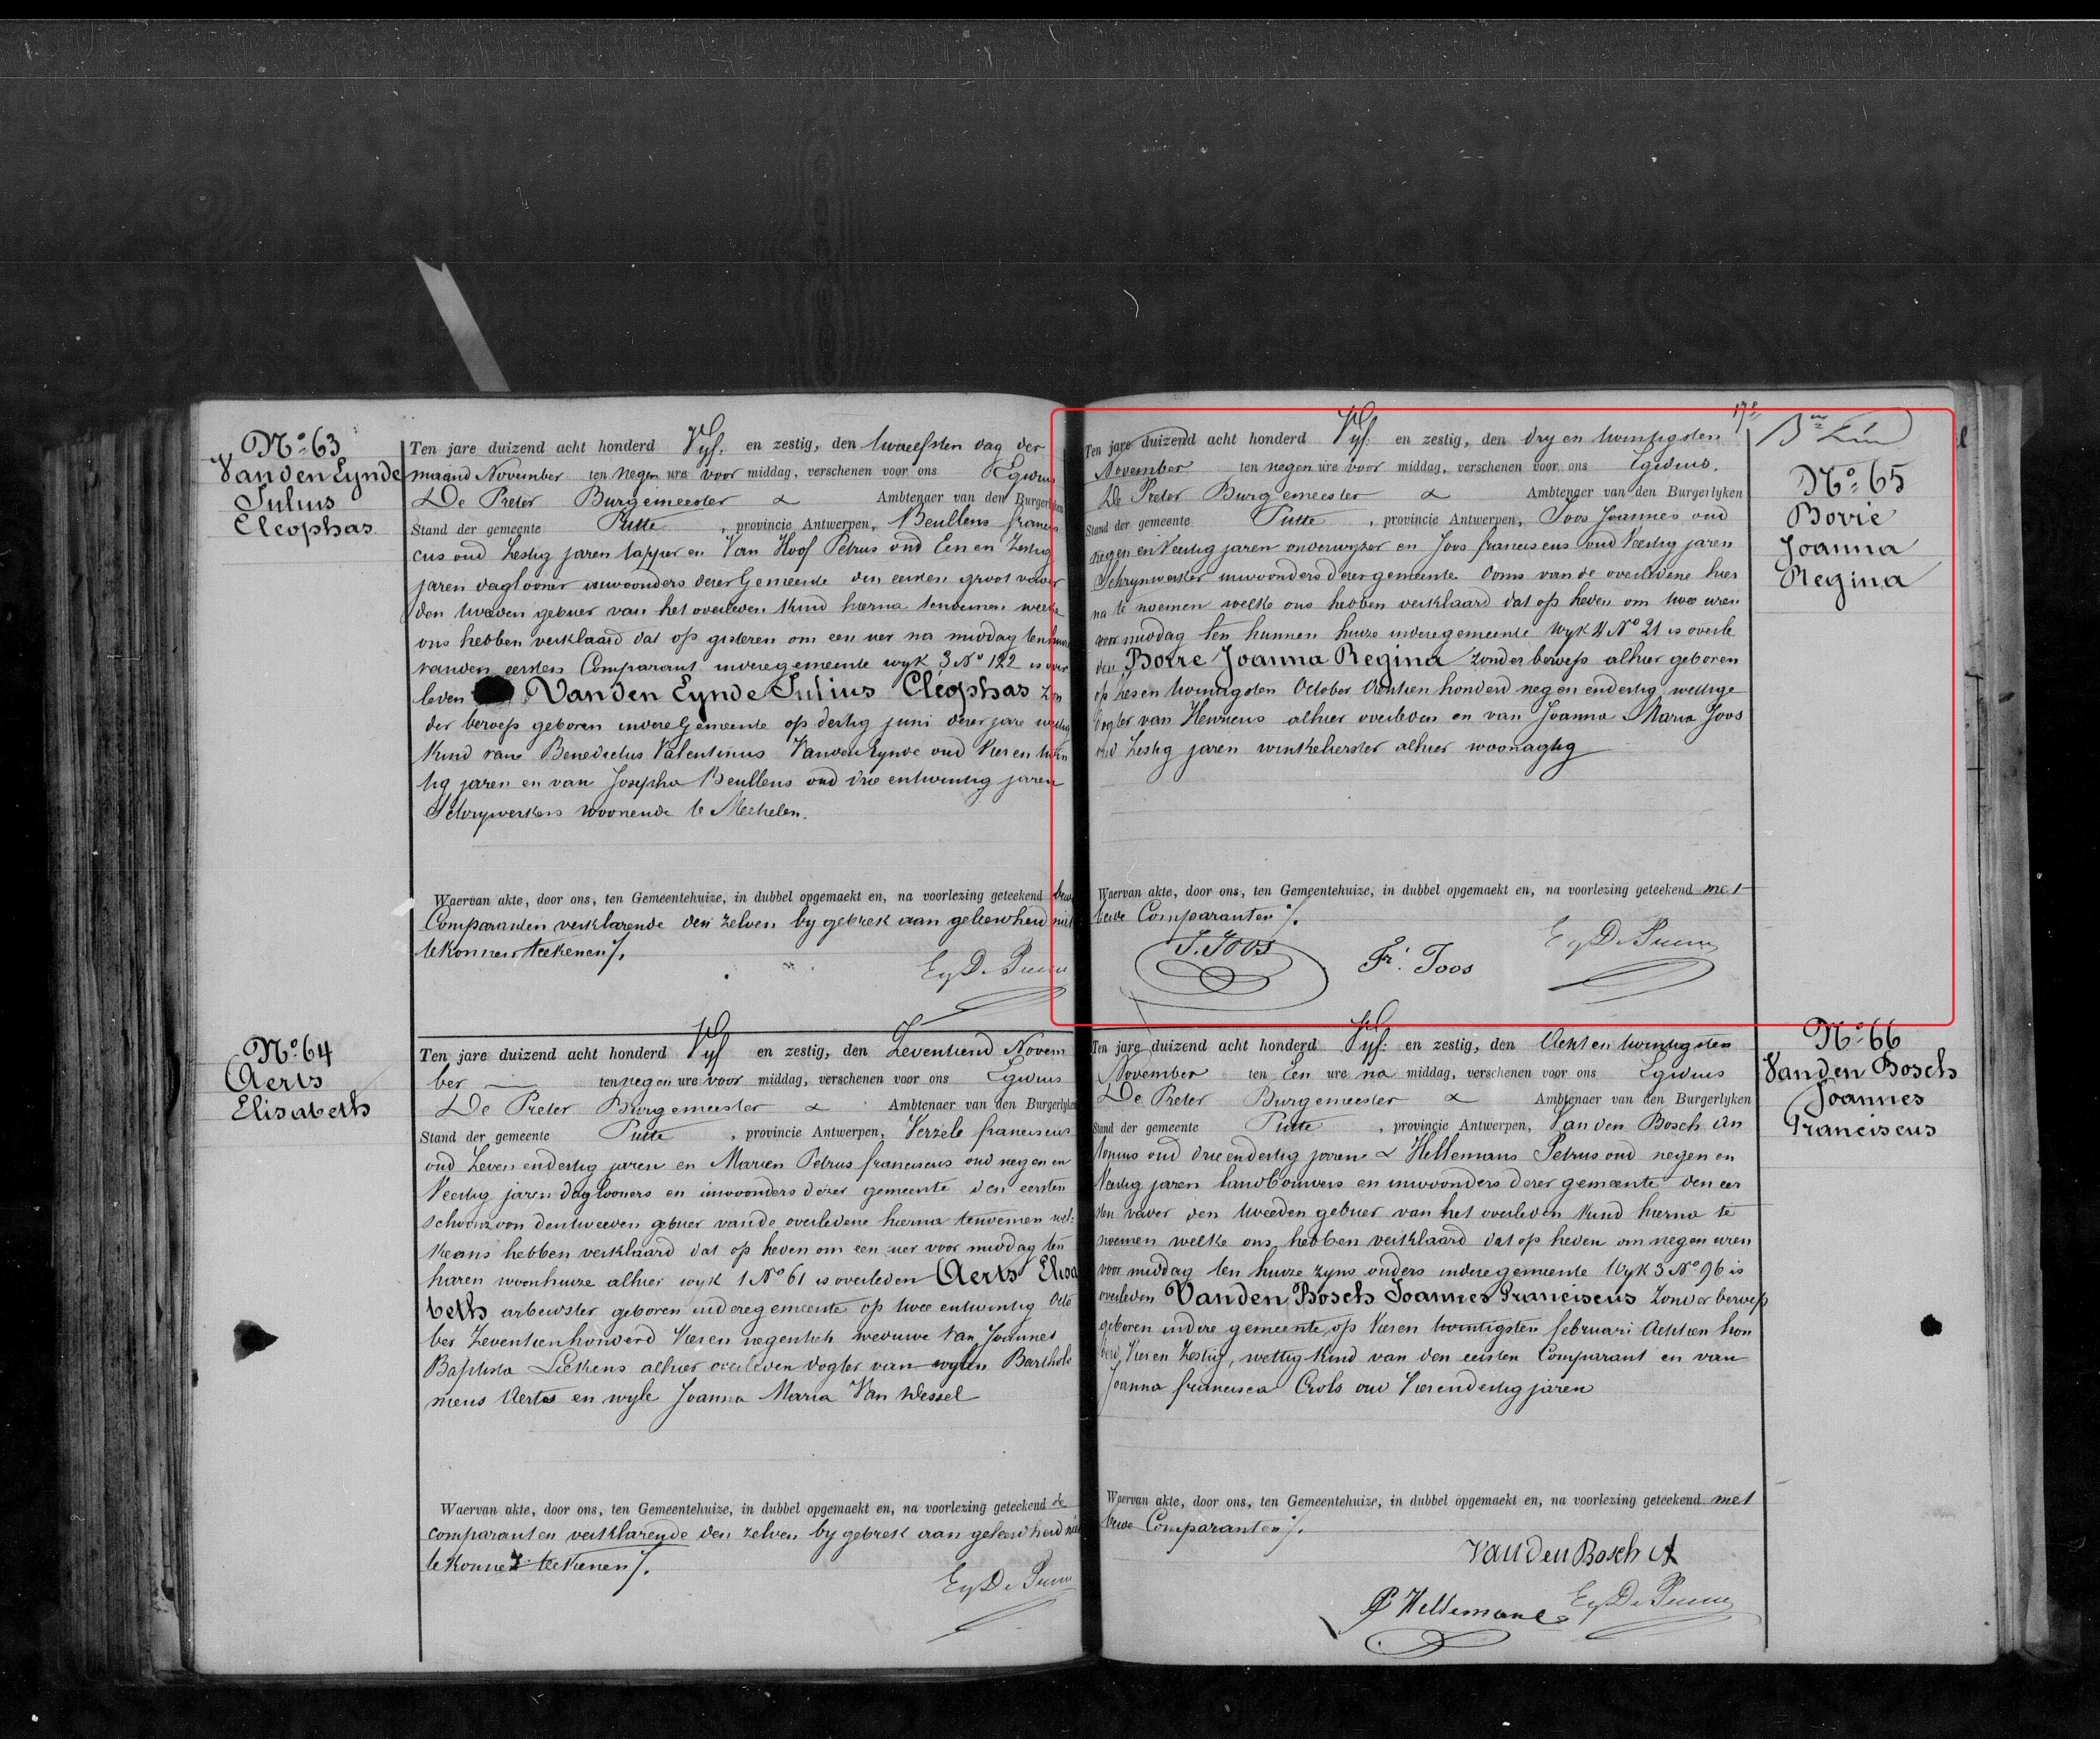 Nº 63
Van den Eynde
Julius
Cleophas
Ten jare duizend acht honderd Vyf en zestig, den twaelfsten dag der
maand November ten negen ure voor middag, verschenen voor ons Egidius
De Preter Burgemeester & Ambtenaer van den Burgerlyken
Stand der gemeente Putte, provincie Antwerpen, Beullens francis
cus oud Zestig jaren tapper en Van Hoof Petrus oud Een en Zestig
jaren daglooner inwoonders dezer Gemeente den eersten groot vader
den tweeden gebuer van het overleden Kind hierna tenoemen welke
ons hebben verklaard dat op gisteren om een uer na middag ten huize
vanden eersten Comparant inderegemeente wyk 3 Nº 122 is over
leden Van den Eynde Julius Cléophas zon
der beroep geboren indere Gemeente op dertig juni dezer jare wettig
Kind van Benedictus Valentinus Vanden Eynde oud Vier en twin
tig jaren en van Josepha Beullens oud drie entwintig jaren
Schrynwerkers woonende te Mechelen.
Waervan akte, door ons, ten Gemeentehuize, in dubbel opgemaekt en, na voorlezing geteekend
Comparanten verklarende den zelven by gebrek aan geleerdheid niet
tekonnen teekenen ./.
Nº 64
Aerts
Elisabeth
Ten jare duizend acht honderd Vyf en zestig, den Zeventiend Novem
ber ten negen ure voor middag, verschenen voor ons Egidius
De Preter Burgemeester & Ambtenaer van den Burgerlyken
Stand der gemeente Putte, provincie Antwerpen, Verzele franciscus
oud Zeven endertig jaren en Marien Petrus franciscus oud negen en
Veertig jaren daglooners en inwoonders dezer gemeente den eersten
schoonzoon dentweeden gebuer vande overledene hierna tenoemen wel:
Keons hebben verklaard dat op heden om een uer voor middag ten
haren woonhuize alhier wyk 1 Nº 61 is overleden Aerts Elisa
beth arbeidster geboren inderegemeente op twee entwintig Octo
ber Zeventienhonderd Vieren negentich weduwe van Joannes
Baptista Liekens alhier overleden dogter van wylen Bartholo
meus Aerts en wyle Joanna Maria Van Wessel
Waervan akte, door ons, ten Gemeentehuize, in dubbel opgemaekt en, na voorlezing geteekend de
comparanten verklarende den zelven by gebrek aan geleerdheid niet
tekonnen teekenen ./.
Ten jare duizend acht honderd Vyf en zestig, den dry en twintigsten
November ten negen ure voor middag, verschenen voor ons Egidius.
De Preter Burgemeester & Ambtenaer van den Burgerlyken
Stand der gemeente Putte, provincie Antwerpen, Joos Joannes oud
negen en Veertig jaren onderwyzer en Joos franciscus oud Veertig jaren
Schrynwerker inwoonders dezergemeente Ooms van de overledene hier
na te noemen welke ons hebben verklaard dat op heden om twee uren
voor middag ten hunnen huize inderegemeente Wyk 4 Nº 21 is overle
den Borre Joanna Regina zonder beroep alhier geboren
op zes en twintigsten October Achtien honderd negen endertig wettige
dogter van Henricus alhier overleden en van Joanna Maria Joos
oud Zestig jaren winkelierster alhier woonagtig
Waervan akte, door ons, ten Gemeentehuize, in dubbel opgemaekt en, na voorlezing geteekend met
beide Comparanten ./.
J. Joos
Fr. Joos
Nº 65
Borré
Joanna
Regina
Ten jare duizend acht honderd Vyf en zestig, den Acht en twintigsten
November ten Een ure na middag, verschenen voor ons Egidius
De Preter Burgemeester & Ambtenaer van den Burgerlyken
Stand der gemeente Putte, provincie Antwerpen, Van den Bosch An
tonius oud drie endertig jaren & Hellemans Petrus oud negen en
Veertig jaren landbouwers en inwoonders dezer gemeente den eer
sten vader den tweeden gebuer van het overleden Kind hierna te
noemen welke ons hebben verklaard dat op heden om negen uren
voor middag ten huize zyns ouders inderegemeente Wyk 3 Nº 96 is
overleden Vanden Bosch Joannes Franciscus Zonder beroep
geboren indere gemeente op Vieren twintigsten februari Achtien hon
derd Vieren Zestig, wettig Kind van den eersten Comparant en van
Joanna francisca Crols oud Vierendertig jaren
Waervan akte, door ons, ten Gemeentehuize, in dubbel opgemaekt en, na voorlezing geteekend met
beide Comparanten ./.
Van den Bosch A
P Hellemans
Nº 66
Van den Bosch
Joannes
Franciscus